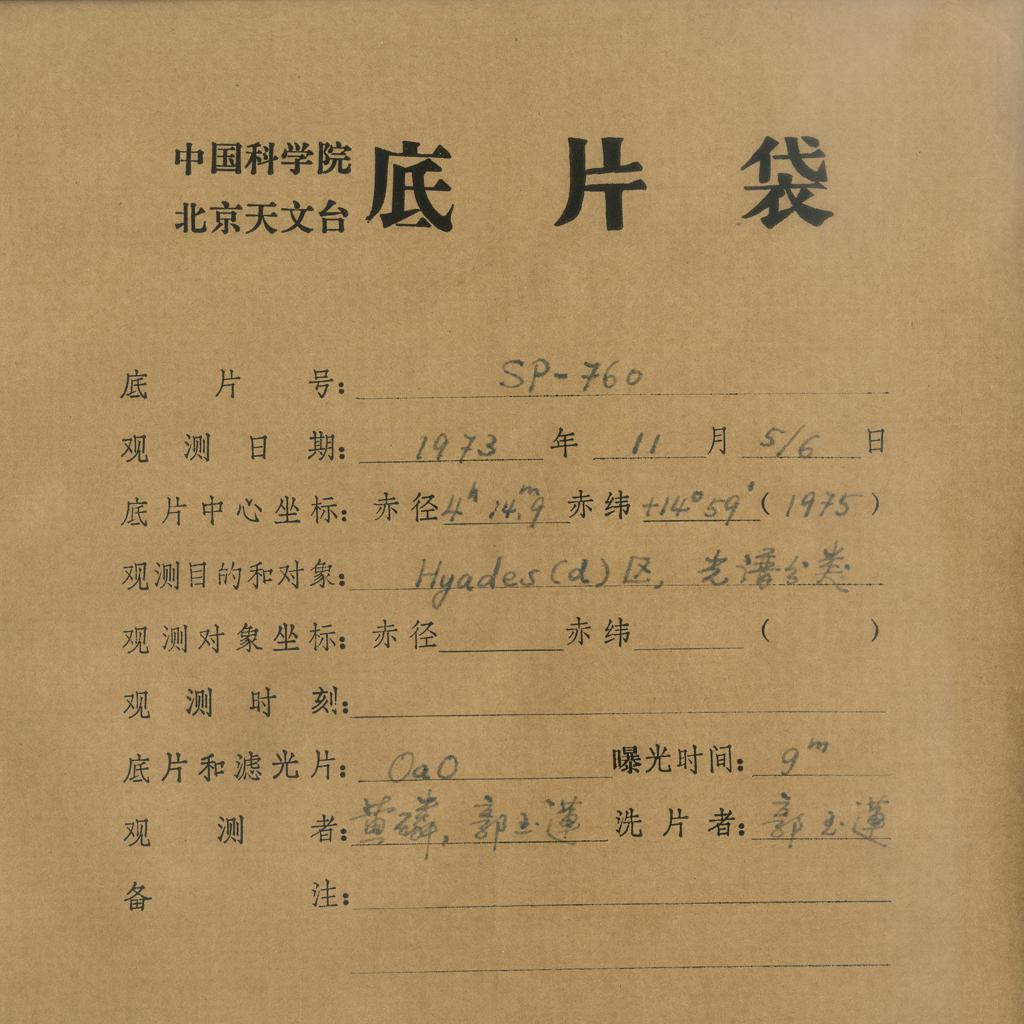 中国科学院
北京天文台
底片袋
底片号: SP-760
观测日期: 1973年 11月 5/6日
底片中心坐标: 赤径 4h 14m.9 赤纬 +14°59′ (1975)
观测目的和对象: Hyades(d)区, 光谱分类
观测对象坐标: 赤径 赤纬 ( )
观测时刻:
底片和滤光片: OaO 曝光时间: 9m
观测者: 黄磷, 郭玉莲 洗片者: 郭玉莲
备注: